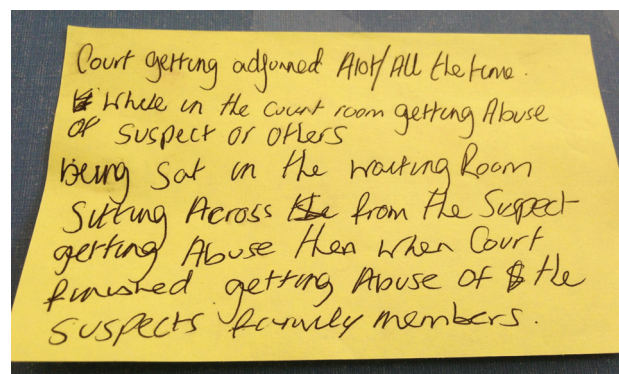 Court getting adjurned Alot/All the time.
While in the court room getting Abuse
of suspect or others
being sat in the waiting Room
Sitting Across from the Suspect
getting Abuse then when Court
finished getting Abuse of the
suspects family members.